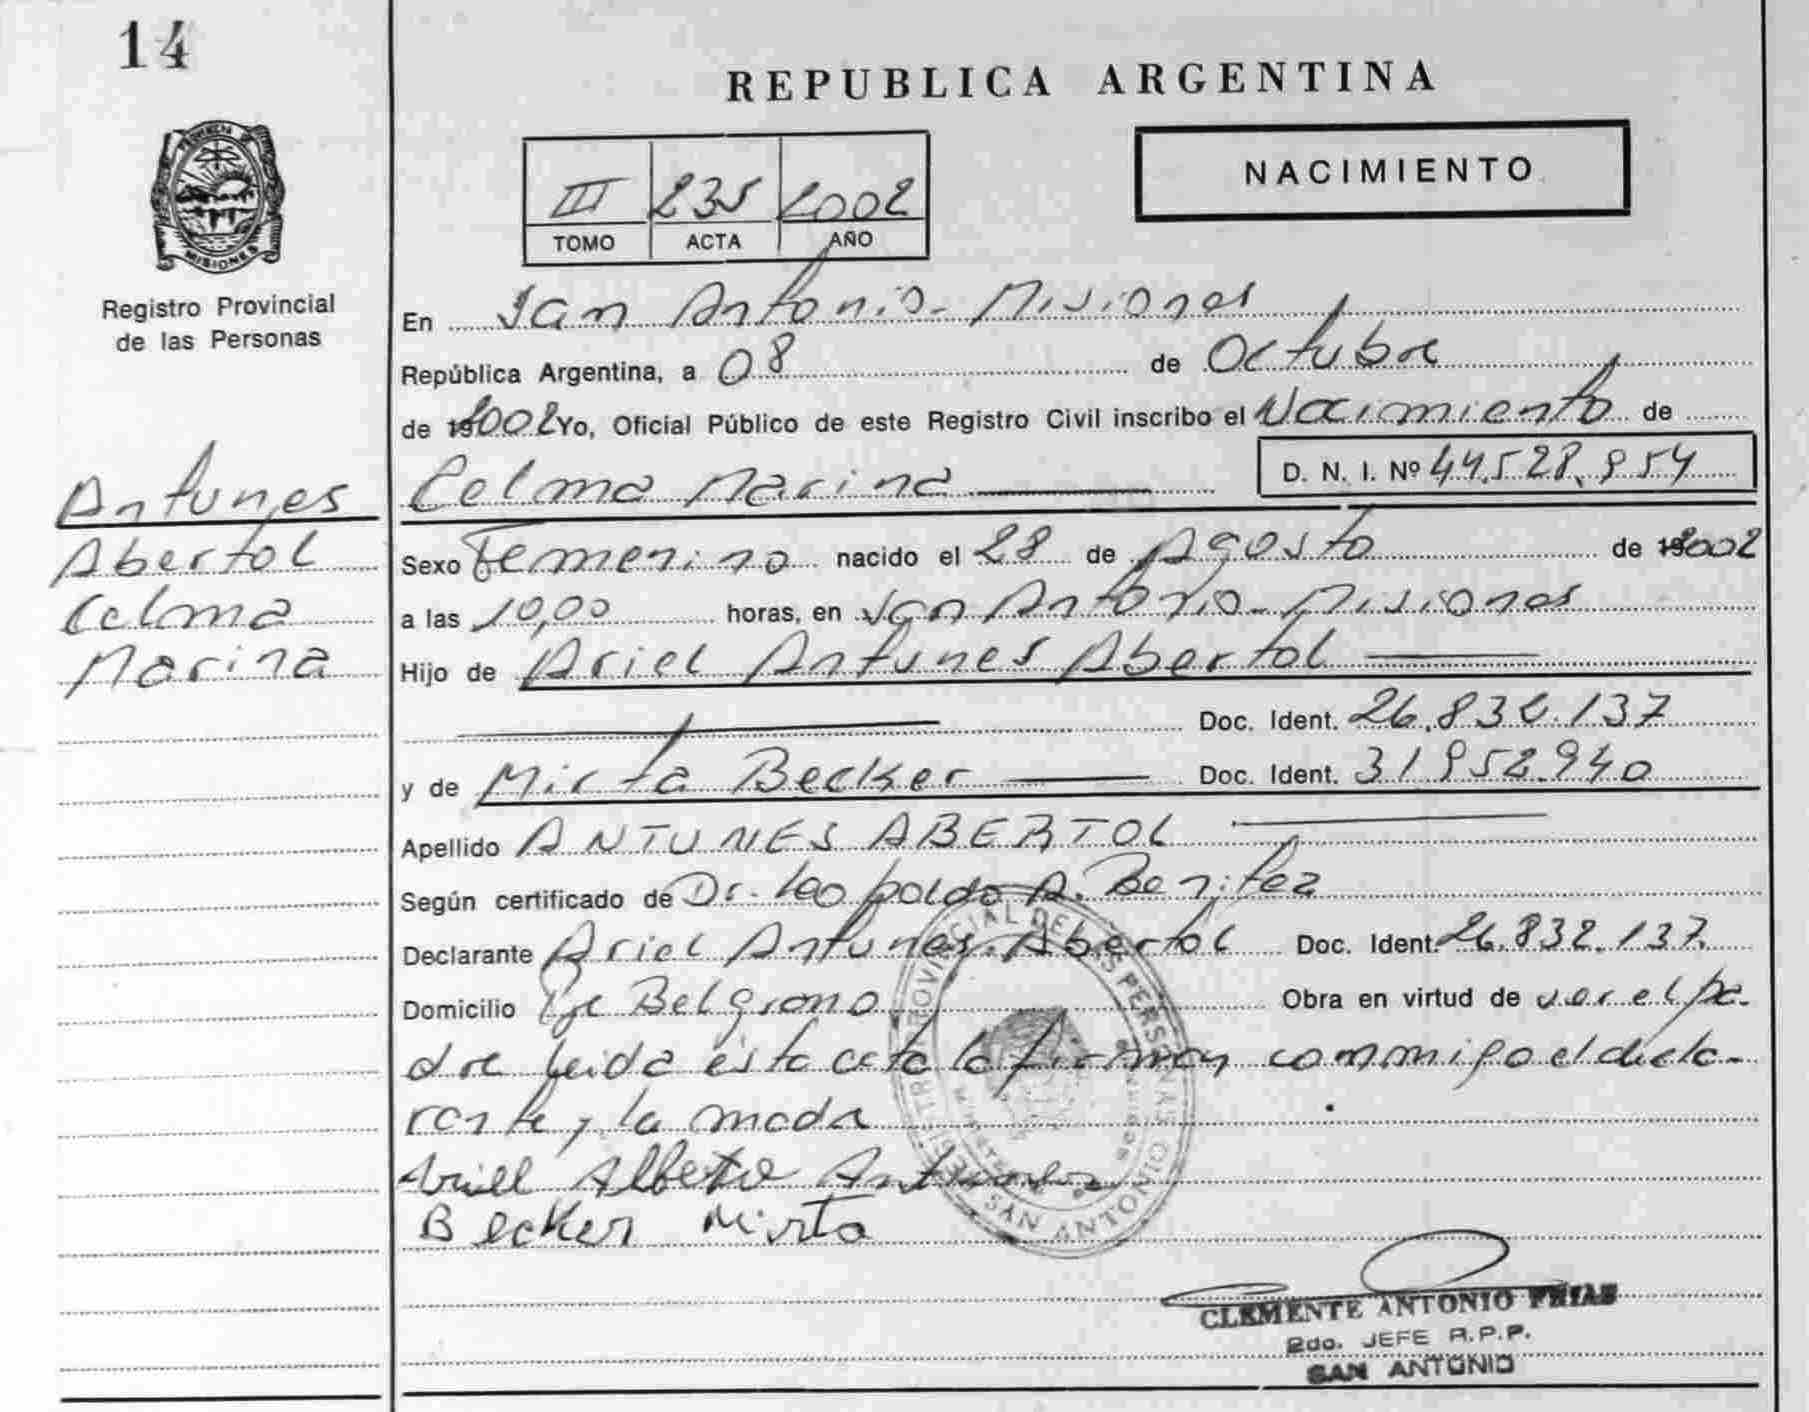 14
REPUBLICA ARGENTINA
NACIMIENTO
III 235 2002
TOMO ACTA AÑO
PROVINCIA DE MISIONES
Registro Provincial
de las Personas
En San Antonio - Misiones
República Argentina, a 08 de Octubre
de 2002 Yo, Oficial Público de este Registro Civil inscribo el Nacimiento de
Celma Marina D. N. I. Nº 44.528.954
Antunes
Abertol
Celma
Marina
Sexo Femenino nacido el 28 de Agosto de 2002
a las 10,00 horas, en San Antonio - Misiones
Hijo de Ariel Antunes Abertol
Doc. Ident. 26.832.137
y de Mirta Becker Doc. Ident. 31.952.940
Apellido ANTUNES ABERTOL
Según certificado de Dr. Leopoldo A. Benitez
Declarante Ariel Antunes Abertol Doc. Ident. 26.832.137.
Domicilio Pje Belgrano Obra en virtud de ser el pa-
dre leida ésta acta la firman commigo el decla-
rante y la mada
Alberto
Becker Mirta
REGISTRO PROVINCIAL DE LAS PERSONAS
SAN ANTONIO
CLEMENTE ANTONIO FRIAS
2do. JEFE R.P.P.
SAN ANTONIO